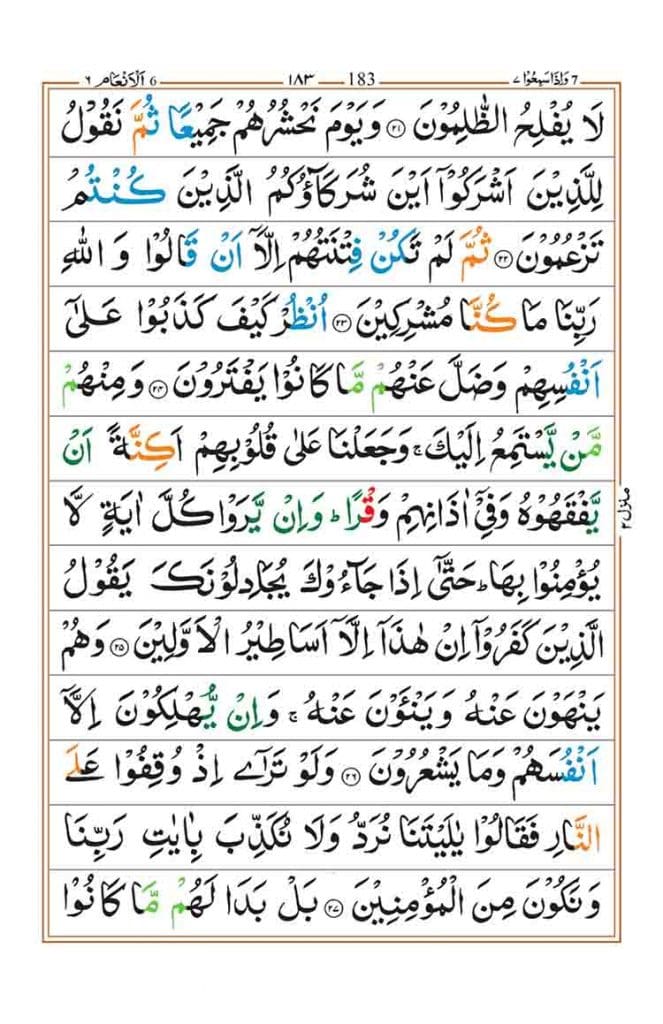 وَاِذَا سَمِعُوْا ٧ 7 183 ١٨٣ 6 اَلْاَنْعَام ٦
لَا يُفْلِحُ الظّٰلِمُوْنَ ﴿٢١﴾ وَيَوْمَ نَحْشُرُهُمْ جَمِيْعًا ثُمَّ نَقُوْلُ
لِلَّذِيْنَ اَشْرَكُوْۤا اَيْنَ شُرَكَآؤُكُمُ الَّذِيْنَ كُنْتُمْ
تَزْعُمُوْنَ ﴿٢٢﴾ ثُمَّ لَمْ تَكُنْ فِتْنَتُهُمْ اِلَّاۤ اَنْ قَالُوْا وَاللّٰهِ
رَبِّنَا مَا كُنَّا مُشْرِكِيْنَ ﴿٢٣﴾ اُنْظُرْ كَيْفَ كَذَبُوْا عَلٰۤى
اَنْفُسِهِمْ وَضَلَّ عَنْهُمْ مَّا كَانُوْا يَفْتَرُوْنَ ﴿٢٤﴾ وَمِنْهُمْ
مَّنْ يَّسْتَمِعُ اِلَيْكَ ۚ وَجَعَلْنَا عَلٰى قُلُوْبِهِمْ اَكِنَّةً اَنْ
يَّفْقَهُوْهُ وَفِيْۤ اٰذَانِهِمْ وَقْرًا ؕ وَاِنْ يَّرَوْا كُلَّ اٰيَةٍ لَّا
يُؤْمِنُوْا بِهَا ؕ حَتّٰۤى اِذَا جَآءُوْكَ يُجَادِلُوْنَكَ يَقُوْلُ
الَّذِيْنَ كَفَرُوْۤا اِنْ هٰذَاۤ اِلَّاۤ اَسَاطِيْرُ الْاَوَّلِيْنَ ﴿٢٥﴾ وَهُمْ
يَنْهَوْنَ عَنْهُ وَيَنْـَٔوْنَ عَنْهُ ۚ وَاِنْ يُّهْلِكُوْنَ اِلَّاۤ
اَنْفُسَهُمْ وَمَا يَشْعُرُوْنَ ﴿٢٦﴾ وَلَوْ تَرٰۤى اِذْ وُقِفُوْا عَلَى
النَّارِ فَقَالُوْا يٰلَيْتَنَا نُرَدُّ وَلَا نُكَذِّبَ بِاٰيٰتِ رَبِّنَا
وَنَكُوْنَ مِنَ الْمُؤْمِنِيْنَ ﴿٢٧﴾ بَلْ بَدَا لَهُمْ مَّا كَانُوْا
منزل ٢